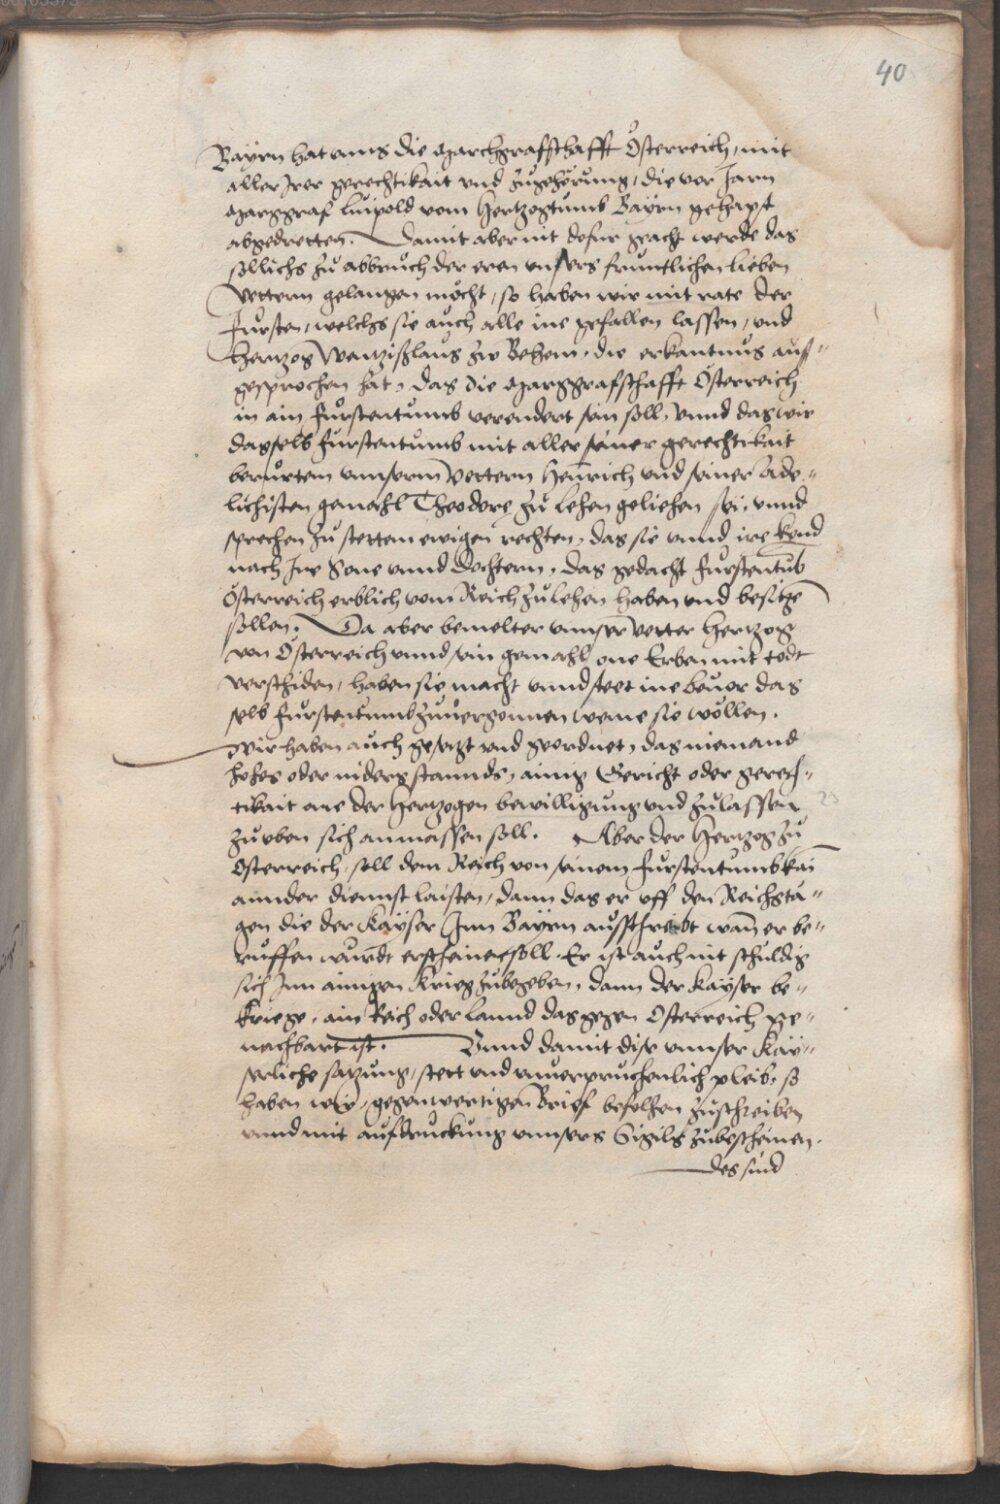 40
Bayrn hat unns die Marchgrafschafft Österreich, mit
aller Irer gerechtikait vnd zugehörung, die vor Jarn
Marggraf Luipold vom Hertzogtumb Bayrn gehapt
abgedretten. Damit aber nit dofur geacht werde das
sollichs zů abbruch der eren vnsers fruntlichen lieben
Vettern gelangen möcht, so haben wir mit rate der
fursten, welchs sie auch alle ine gefallen lassen, vnd
Hertzog Wentzislaus zu Behem, die erkantnus auß-"
gesprochen hat, das die Marggrafschafft Österreich
in ain furstentumb verendert sein soll, Vnnd das wir
dasselb furstentumb mit aller seiner gerechtikait
berurtem vnnserm Vettern Heinrich vnd seiner ade-"
lichisten gemahl Theodore zů lehen geliehen sei, vnnd
sprechen zů stetten ewigen rechten, das sie vnnd ire kend
nach Ine Sone vnnd dochtern, das gedacht furstentub
Österreich erblich vom Reich zů lehen haben vnd besitze
sollen. Da aber bemelter vnnser Vetter Hertzog
von Österreich vnnd sein gemahl one Erben mit todt
verschiden, haben sie macht vnnd steet ine beuor das
selb furstentumb zuuergonnen weme sie wöllen.
Wir haben auch gesetzt vnd geordnet, das niemand
hohes oder niders stannds, ainig Gericht oder gerech-"
tikait one der Hertzogen bewilligung vnd zulassen
zů vben sich anmassen soll. Aber der Hertzog zů
Osterreich, soll dem Reich von seinem furstentumb kain
annder diennst laisten, dann das er vff den Reichstä-"
gen die der Kayser Inn Bayrn ausschreibt wan er be-"
ruffen wurdt erscheinen soll. Er ist auch nit schuldig
sich Inn ainigen Krieg zubegeben, dann der Kayser be-"
kriege, ain Reich oder lannd das gegen Osterreich ge-"
nachbart ist. Vnnd damit dise vnnser Kay-"
serliche satzung, stett vnd vnuerpruchenlich pleib, so
haben wir, gegenwertigen Brief befolhen zuschreiben
vnnd mit aufdruckung vnnsers Sigils zubescheinen.
Des sind